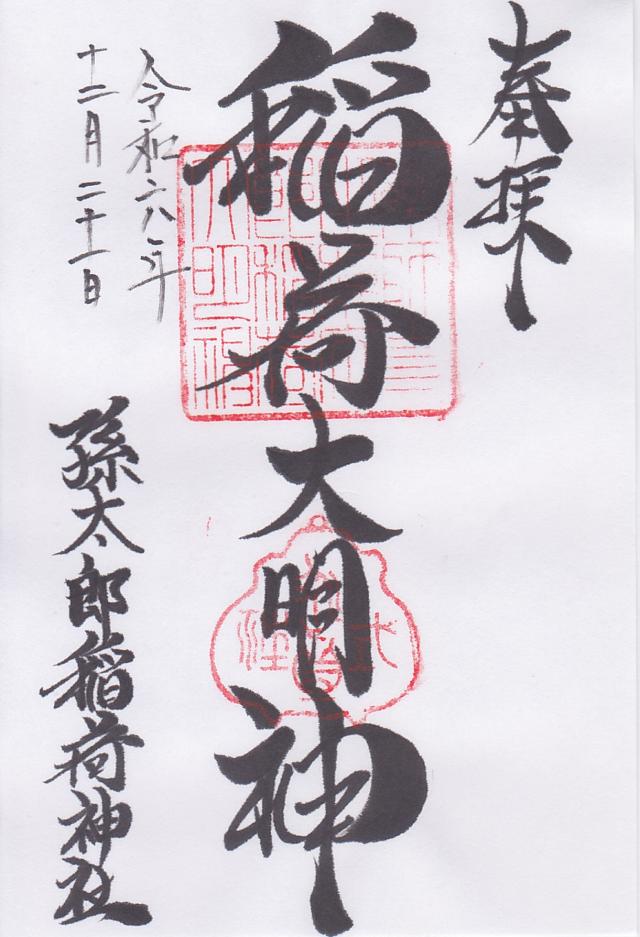 奉拝
稲荷大明神
令和六年
十二月二十一日
孫太郎稲荷神社